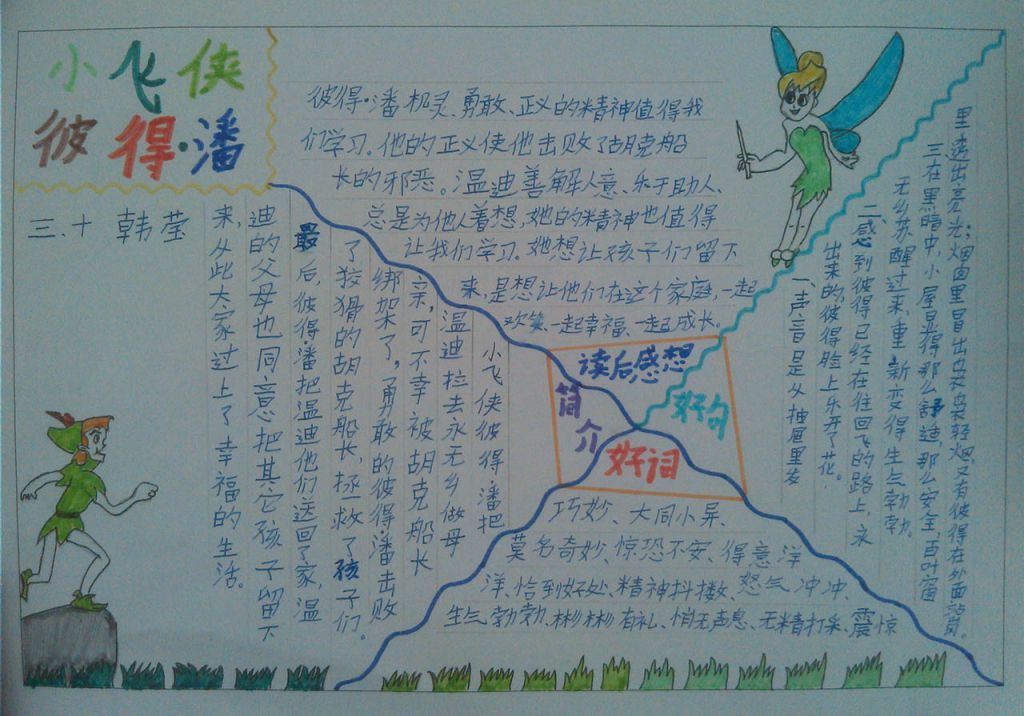 小飞侠
彼得·潘
三.十 韩莹
彼得·潘机灵、勇敢、正义的精神值得我
们学习。他的正义使他击败了胡克船
长的邪恶。温迪善解人意、乐于助人、
总是为他人着想,她的精神也值得
让我们学习。她想让孩子们留下
来,是想让他们在这个家庭,一起
欢笑、一起幸福、一起成长。
读后感想
简介
好句
好词
小飞侠彼得·潘把
温迪拉去永无乡做母
亲,可不幸被胡克船长
绑架了,勇敢的彼得·潘击败
了狡猾的胡克船长,拯救了孩子们。
最后,彼得·潘把温迪他们送回了家,温
迪的父母也同意把其它孩子留下
来,从此大家过上了幸福的生活。
一、声音是从抽屉里发
出来的,彼得脸上乐开了花。
二、感到彼得已经在往回飞的路上,永
无乡苏醒过来,重新变得生气勃勃。
三、在黑暗中,小屋显得那么舒适,那么安全,百叶窗
里透出亮光;烟囱里冒出袅袅轻烟,又有彼得在外面
巧妙、大同小异、
莫名奇妙、惊恐不安、得意洋
洋、恰到好处、精神抖擞、怒气冲冲、
生气勃勃、彬彬有礼、悄无声息、无精打采、震惊